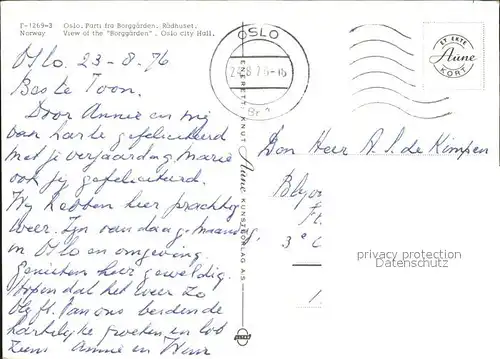 F-1269-3 Oslo. Parti fra Borggården. Rådhuset.
Norway View of the "Borggården". Oslo city Hall.
Oslo. 23-8-76
Beste Toon.
Door Annie en mij
van harte gefeliciteerd
met je verjaardag. Marie
ook gefeliciteerd.
Wij hebben hier prachtig
weer. Zijn vandaag, maandag,
in Oslo en omgeving.
Genieten hier geweldig.
Hopen dat het weer zo
blijft. Van ons beiden de
hartelijke groeten en tot
ziens Annie en Wim
OSLO
Br
ENERETT: KNUT Aune KUNSTFORLAG A/S
ET EKTE
Aune
KORT
Den Heer A. S. de Kimpen
3e
privacy protection
Datenschutz